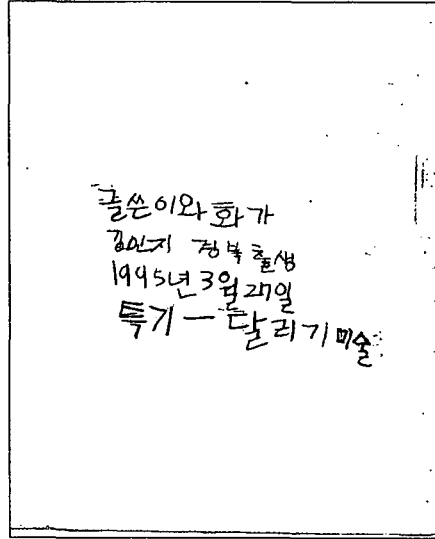 글쓴이와 화가
김민지 경북출생
1995년 3월 27일
특기 - 달리기 미술